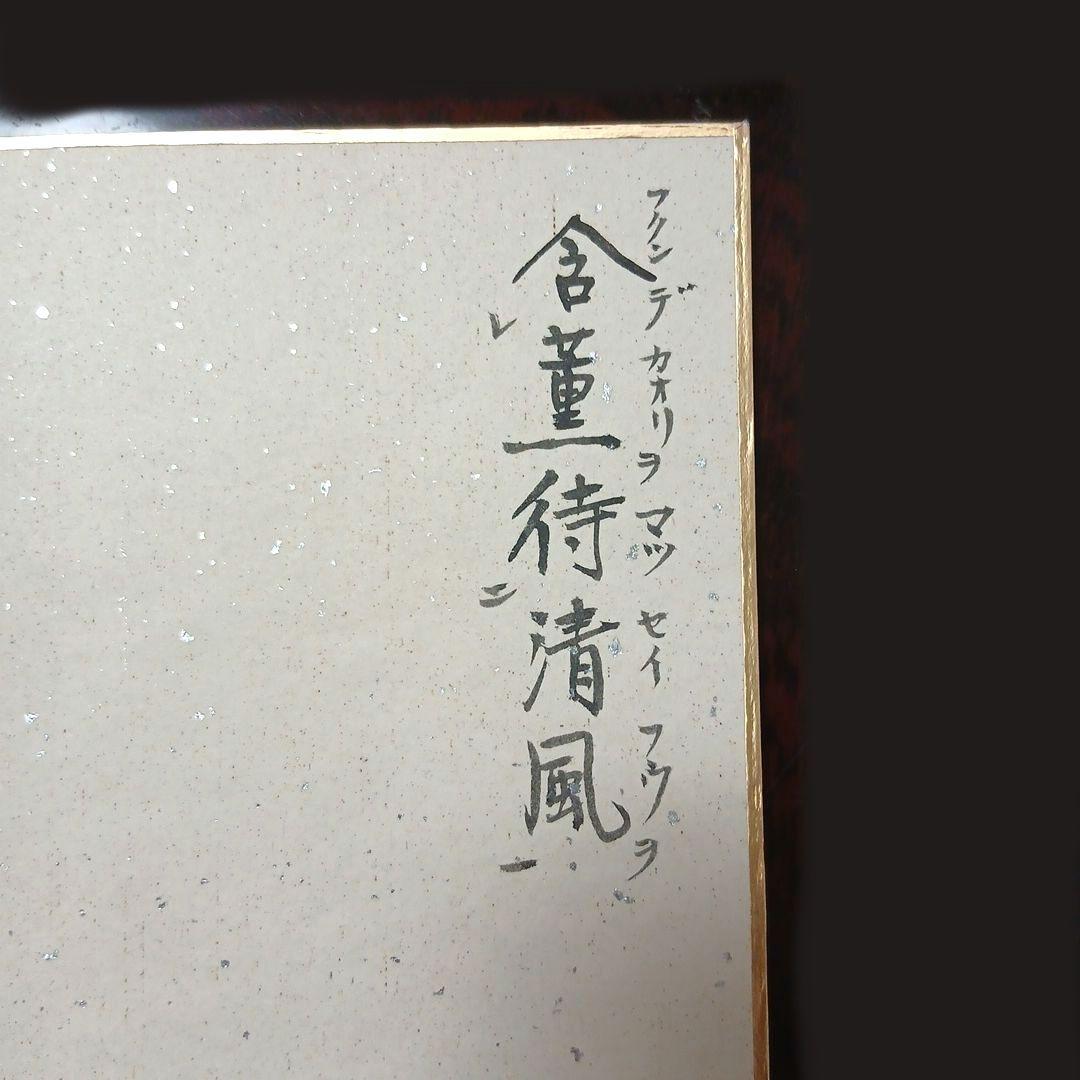 含薫待清風
フクンデカオリヲマツセイフウヲ
レ
二
一